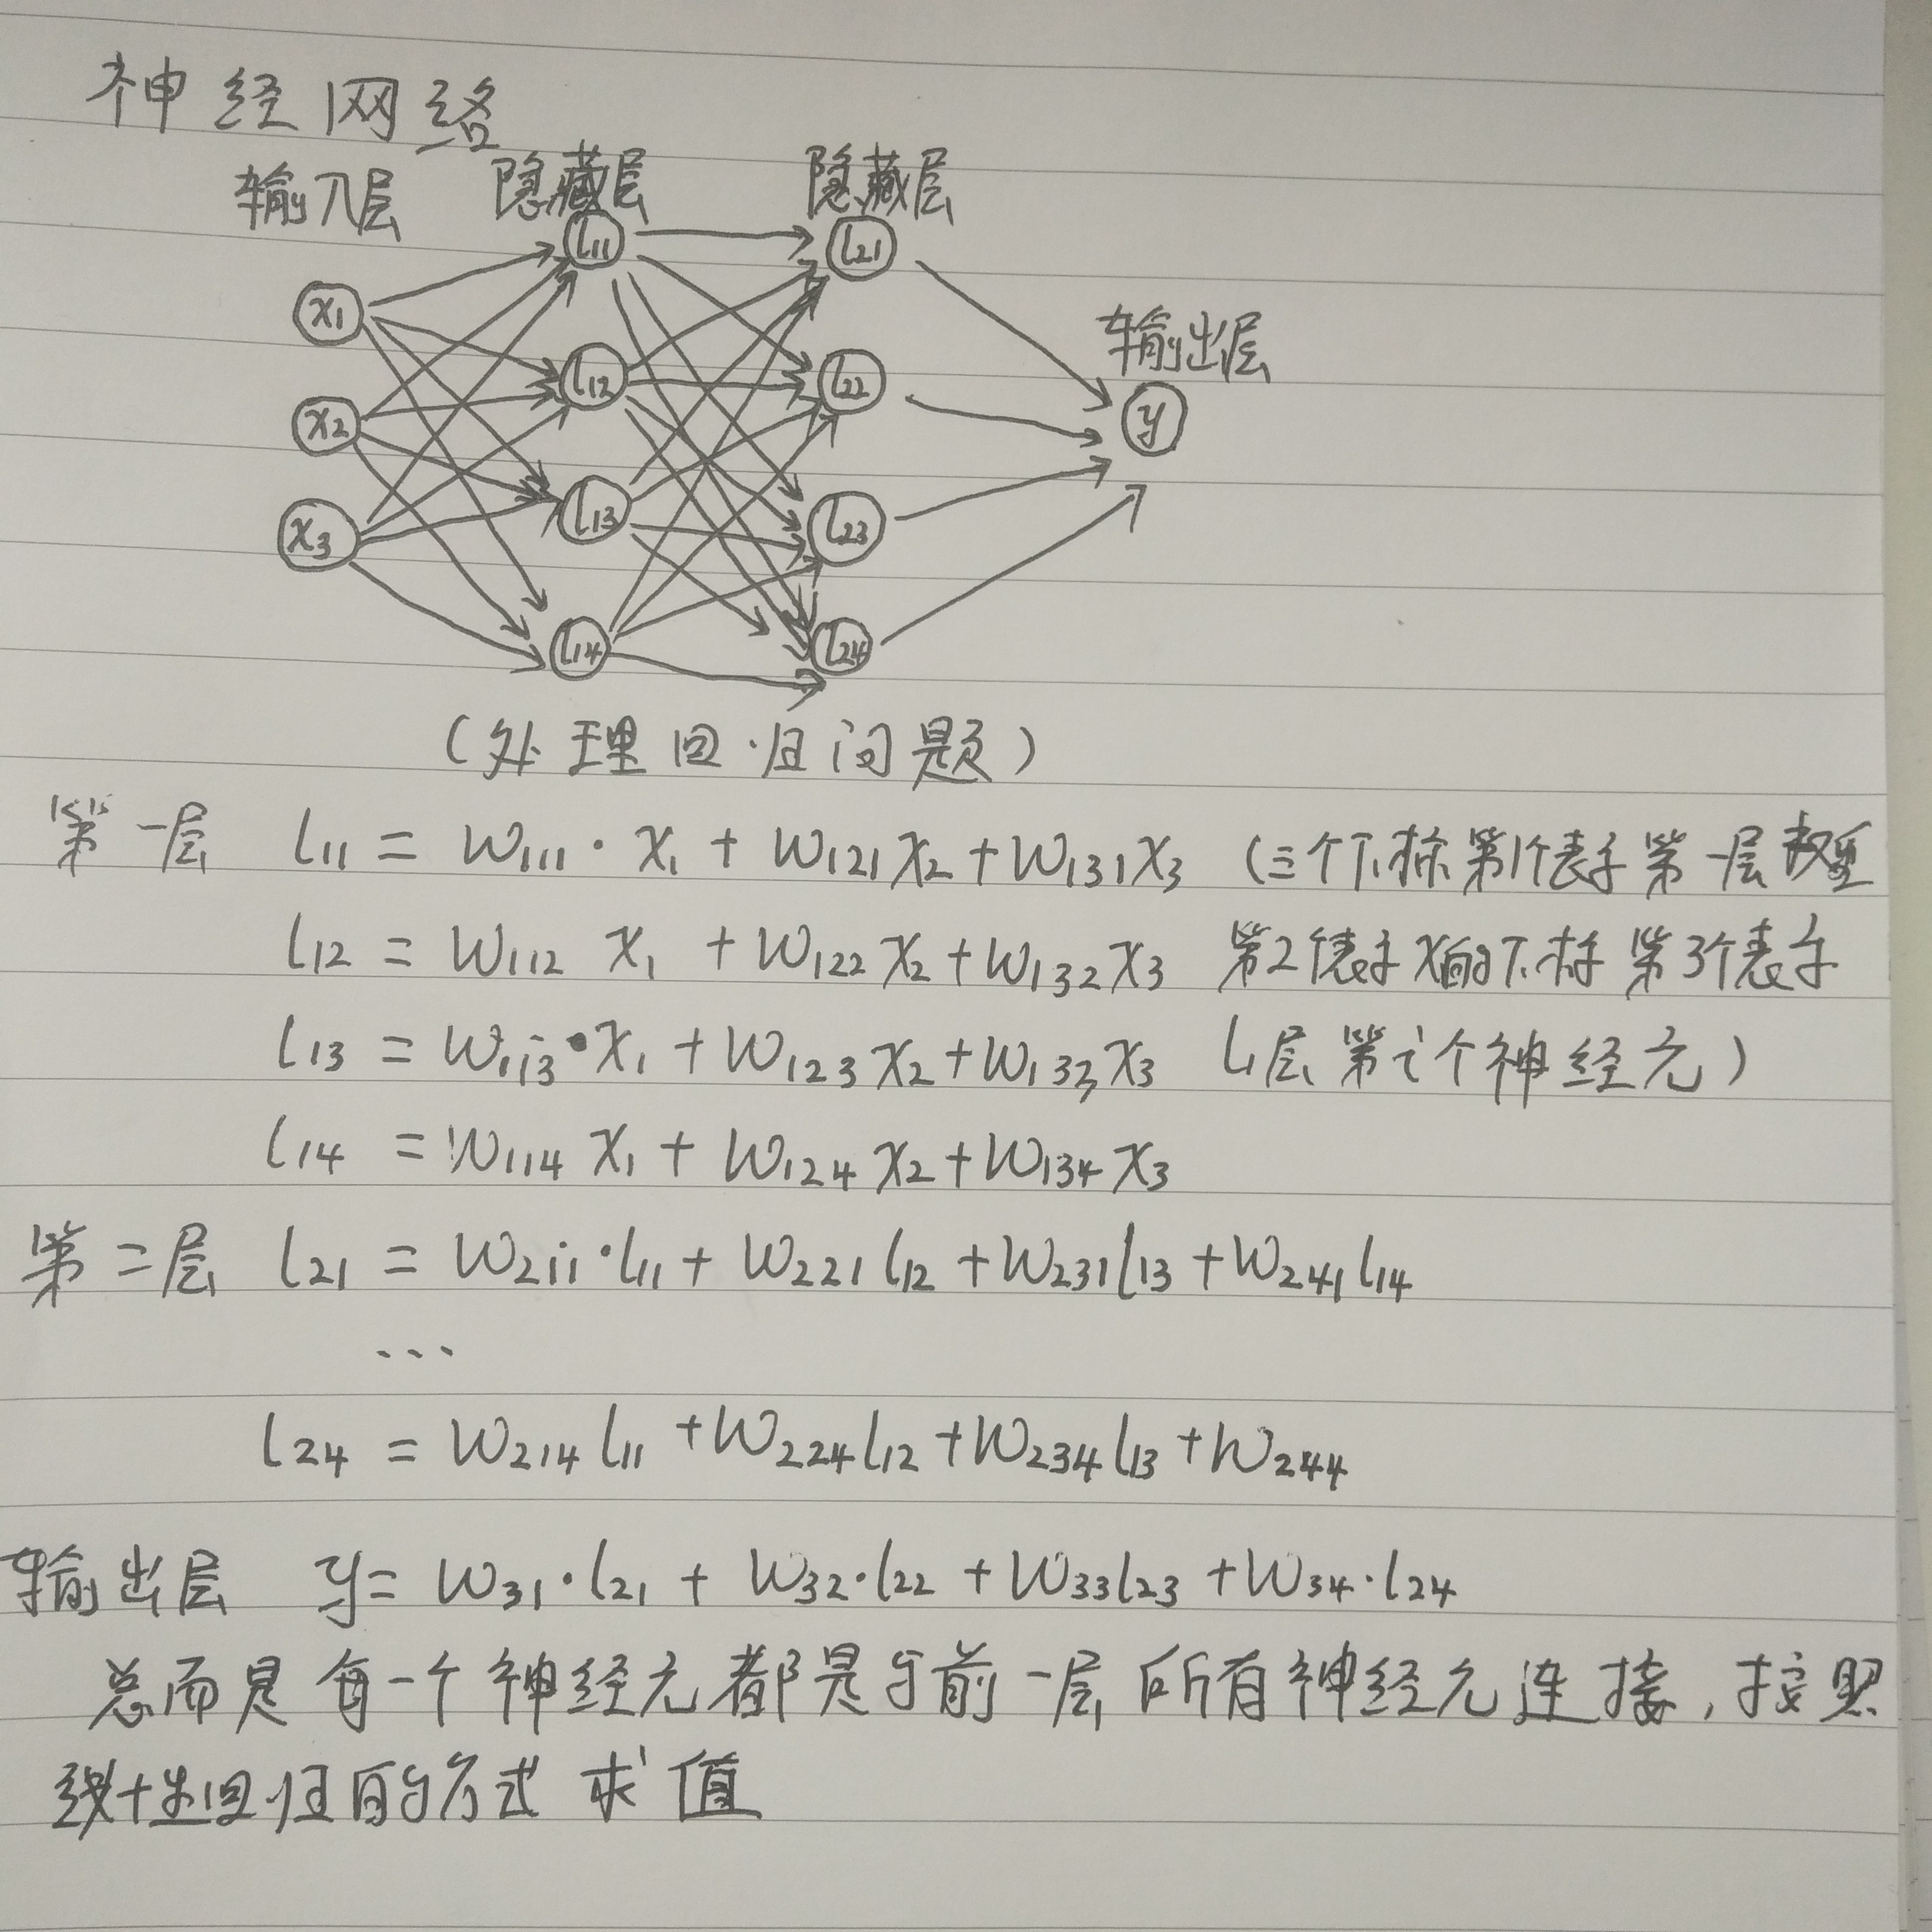 神经网络
输入层 隐藏层 隐藏层
l11 l21
x1
输出层
l12 l22 y
x2
l13 l23
x3
l14 l24
(处理回归问题)
第一层 l11 = w111·x1 + w121x2 + w131x3 (三个下标第1个表示第一层权重
l12 = w112 x1 + w122x2 + w132x3 第2个表示x的下标 第3个表示
l13 = w113·x1 + w123x2 + w133x3 l1层第i个神经元)
l14 = w114x1 + w124x2 + w134x3
第二层 l21 = w211·l11 + w221l12 + w231l13 + w241l14
...
l24 = w214l11 + w224l12 + w234l13 + w244
输出层 y = w31·l21 + w32·l22 + w33l23 + w34·l24
总而是每一个神经元都是与前一层所有神经元连接,按照
线性回归的方式求值